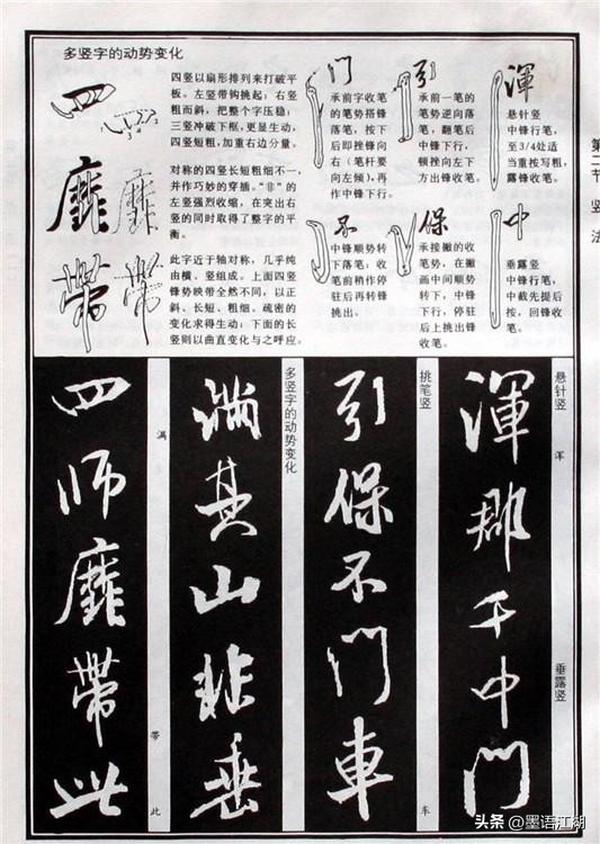 多竖字的动势变化
四
四竖以扇形排列来打破平
板。左竖带钩挑起；右竖
粗而斜，把整个字压稳；
三竖冲破下框，更显生动，
四竖短粗，加重右边分量。
靡
对称的四竖长短粗细不一，
并作巧妙的穿插。“非”的
左竖强烈收缩，在突出右
竖的同时取得了整字的平
衡。
帶
此字近于轴对称，几乎纯
由横、竖组成。上面四竖
锋势映带全然不同，以正
斜、长短、粗细、疏密的
变化求得生动；下面的长
竖则以曲直变化与之呼应。
门
承前字收笔
的笔势搭锋
落笔，按下
后即挫锋向
右（笔杆要
向左倾），再
作中锋下行。
引
承前一笔的
笔势逆向落
笔，翻笔后
中锋下行，
顿挫向左下
方出锋收笔。
渾
悬针竖
中锋行笔，
至3/4处适
当重按写粗，
露锋收笔。
不
中锋顺势转
下落笔；收
笔前稍作停
驻后再转锋
挑出。
保
承接撇的收
笔势，在撇
画中间顺势
转下，中锋
下行，停驻
后上挑出锋
收笔。
中
垂露竖
中锋行笔，
中截先提后
按，回锋收
笔。
第二节 竖法
悬针竖
浑
垂露竖
渾郡千中門
挑笔竖
车
引保不門車
多竖字的动势变化
满其山非垂
满
带
此
四师靡帶此
头条 @墨语江湖